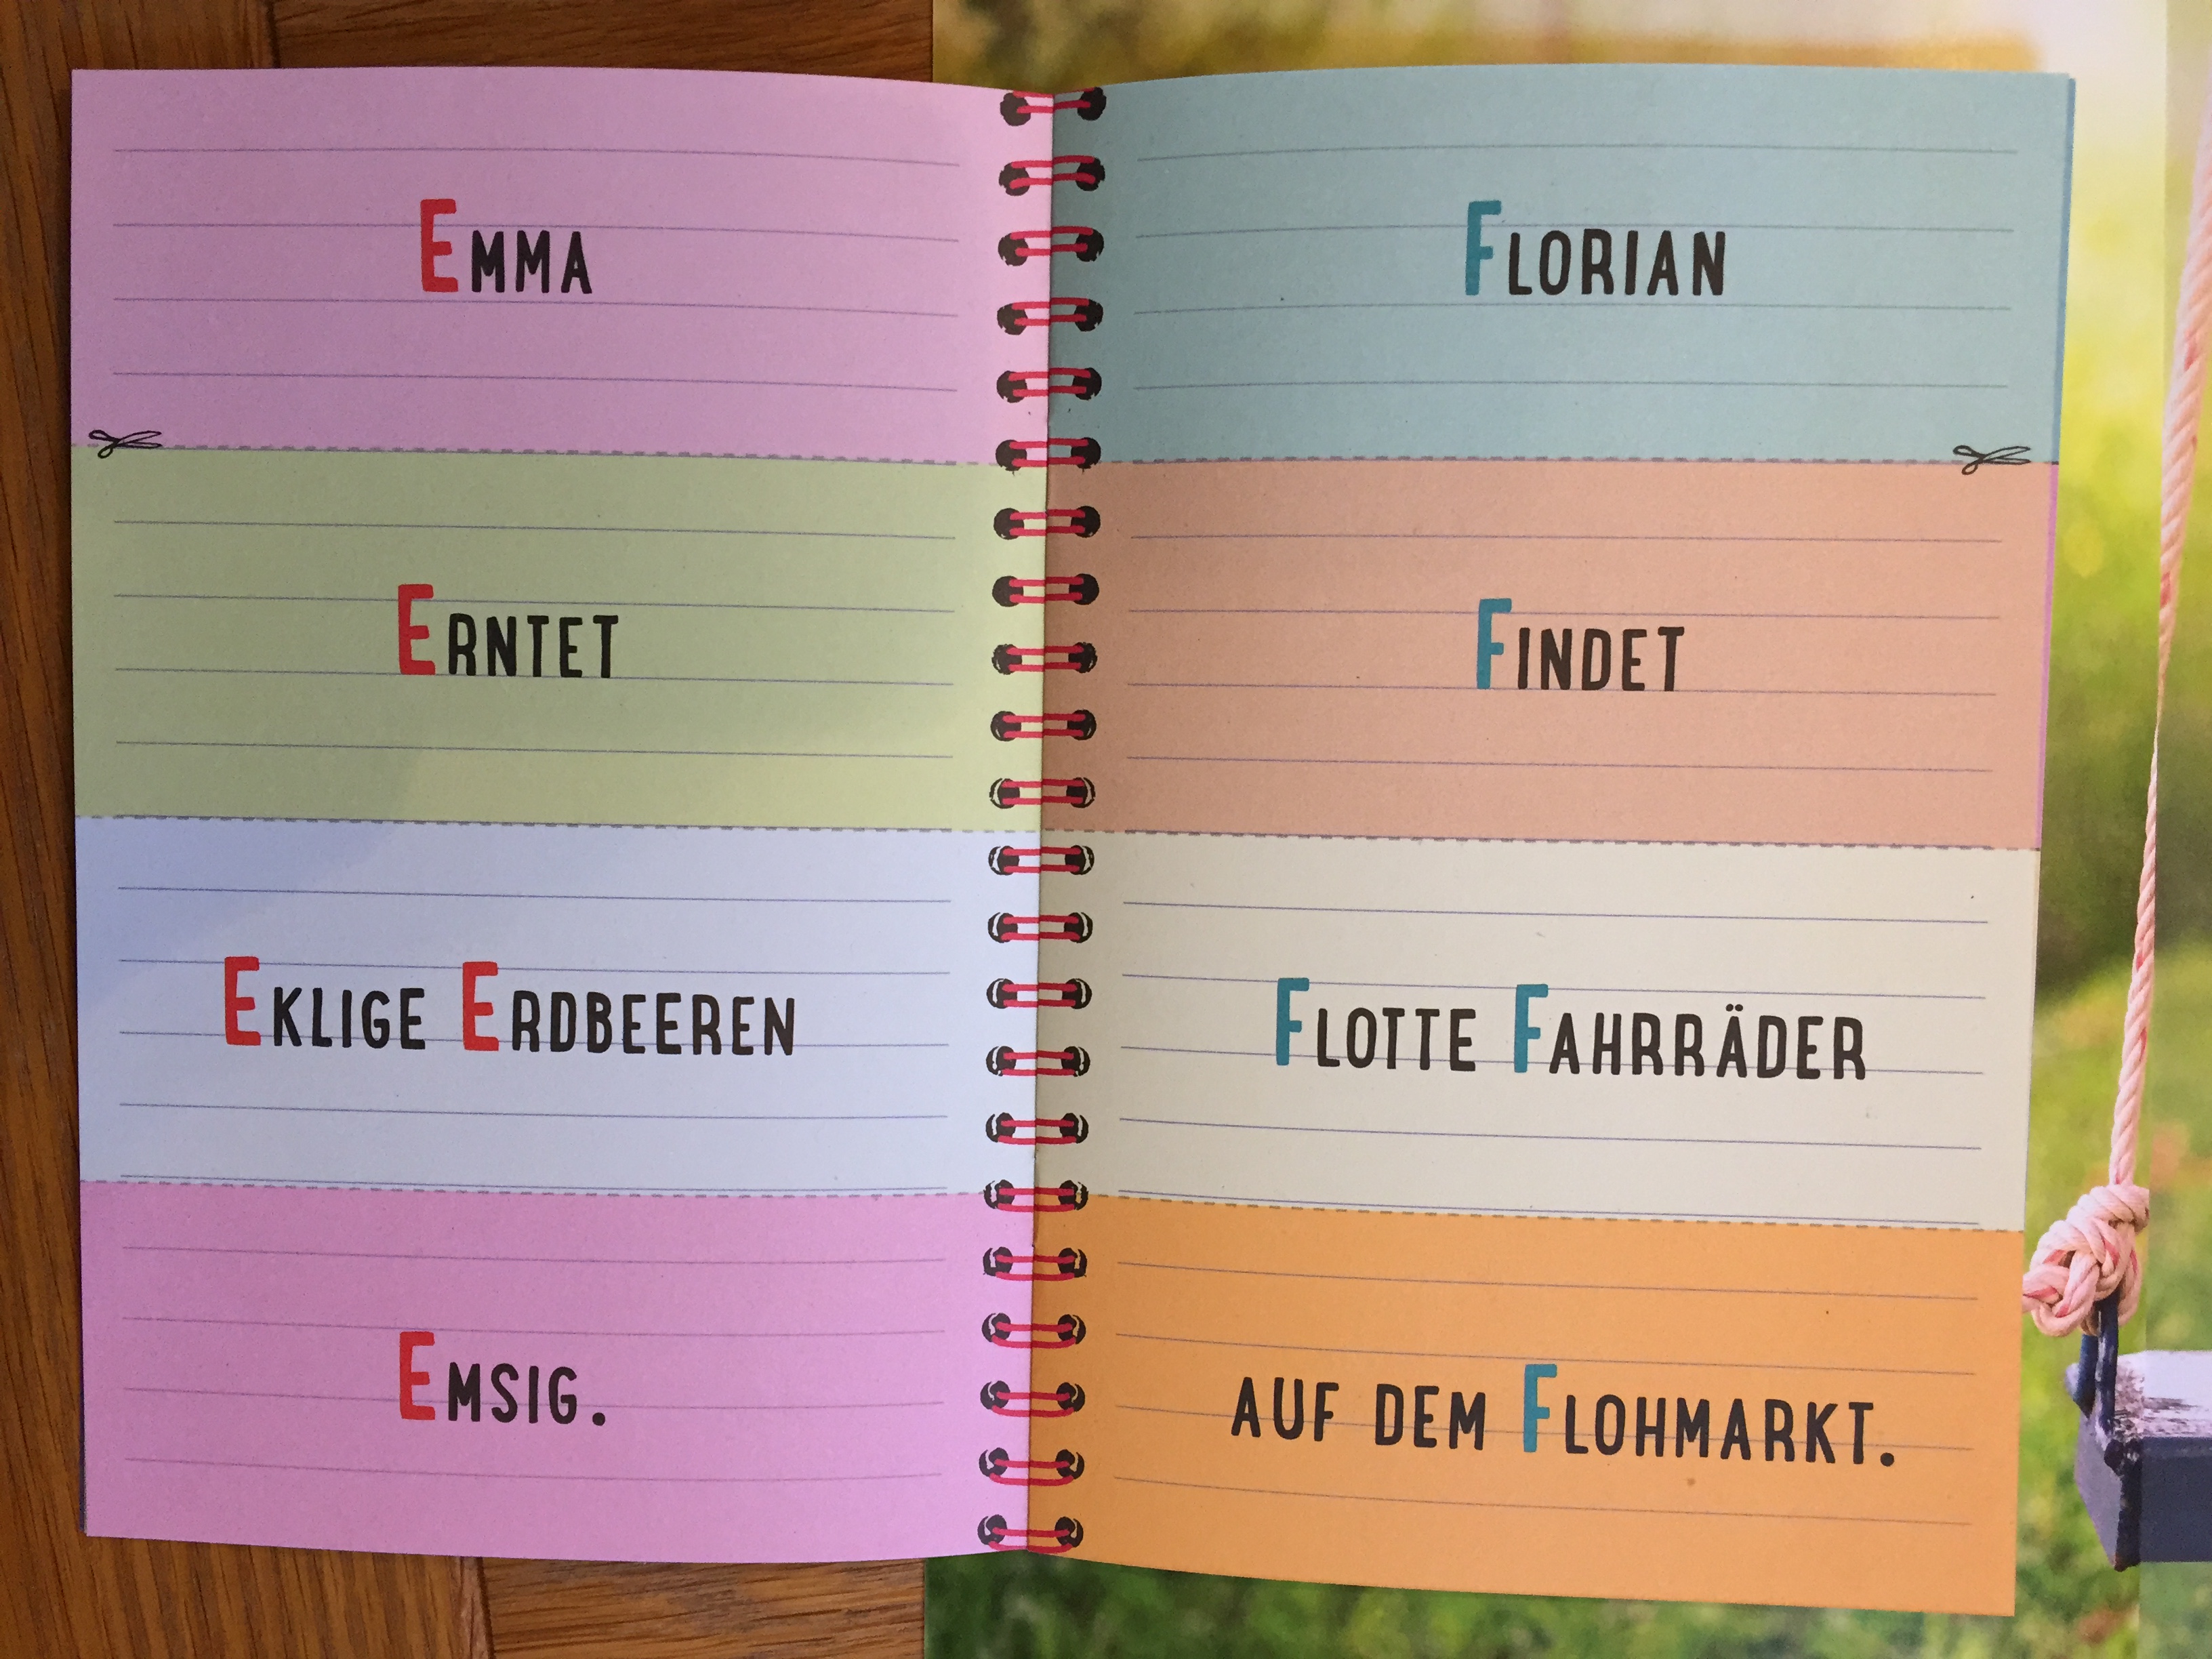 EMMA
ERNTET
EKLIGE ERDBEEREN
EMSIG.
FLORIAN
FINDET
FLOTTE FAHRRÄDER
AUF DEM FLOHMARKT.